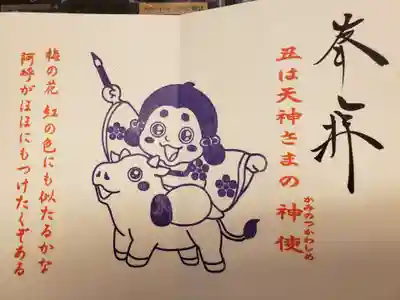 奉拝
丑は天神さまの 神使
かみのつかわしめ
梅の花 紅の色にも似たるかな
阿呼がほほにもつけたくぞある